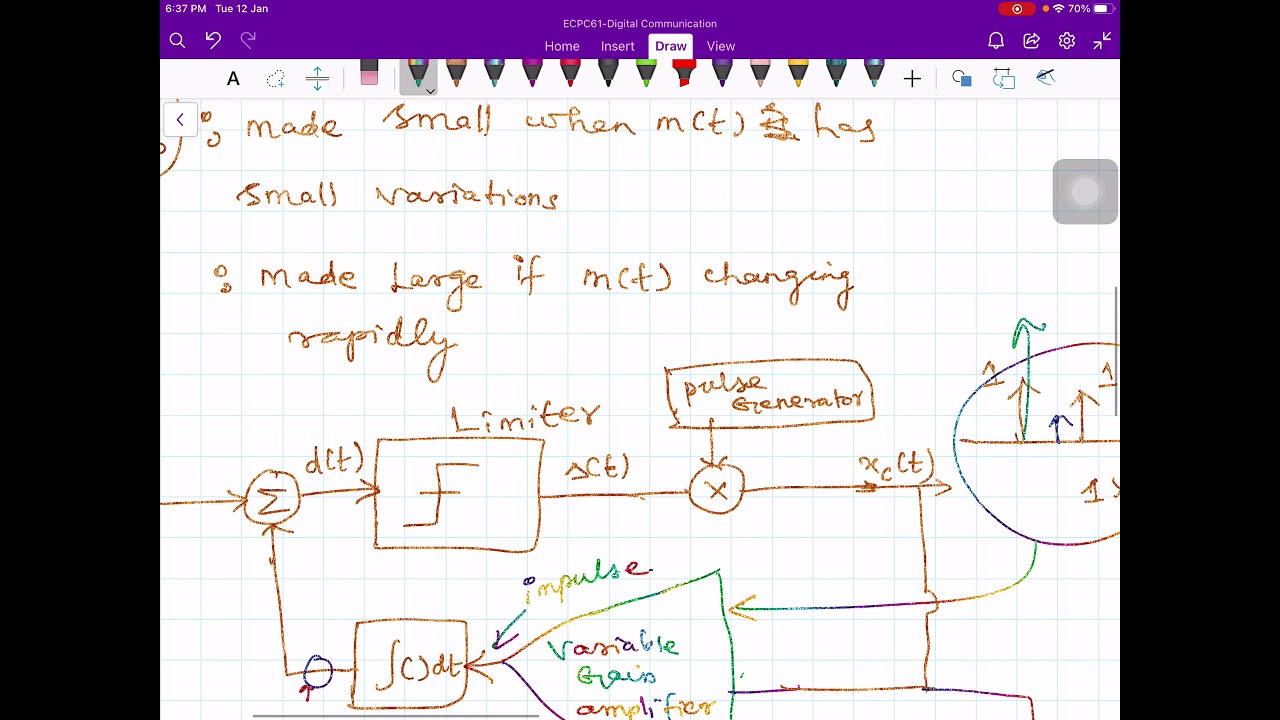 6:37 PM Tue 12 Jan
70%
ECPC61-Digital Communication
Home Insert Draw View
A
: made small when m(t) has
small variations
: made large if m(t) changing
rapidly
Pulse
Generator
Limiter
d(t)
Δ(t)
x_c(t)
Σ
X
1
1
1
impulse
∫( )dt
Variable
Gain
amplifier